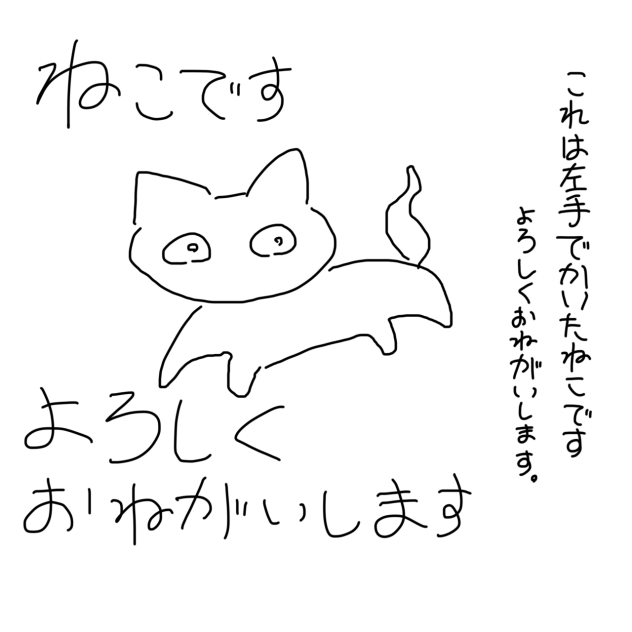 ねこです
よろしく
おねがいします
これは左手でかいたねこです
よろしくおねがいします。